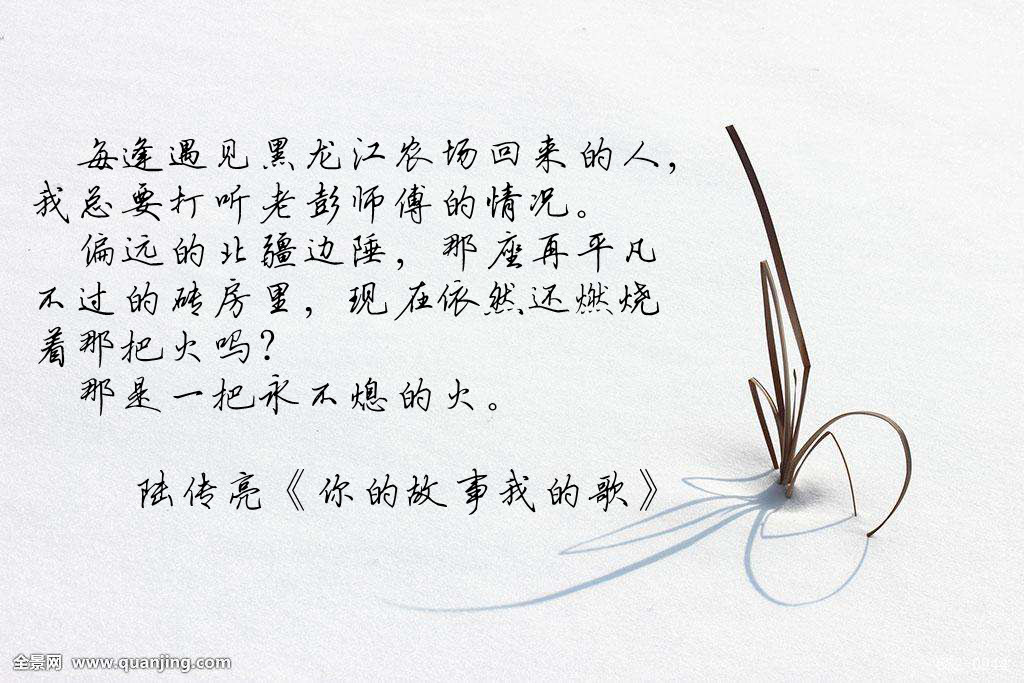 每逢遇见黑龙江农场回来的人，
我总要打听老彭师傅的情况。
偏远的北疆边陲，那座再平凡
不过的砖房里，现在依然还燃烧
着那把火吗？
那是一把永不熄的火。
陆传亮《你的故事我的歌》
全景网 www.quanjing.com